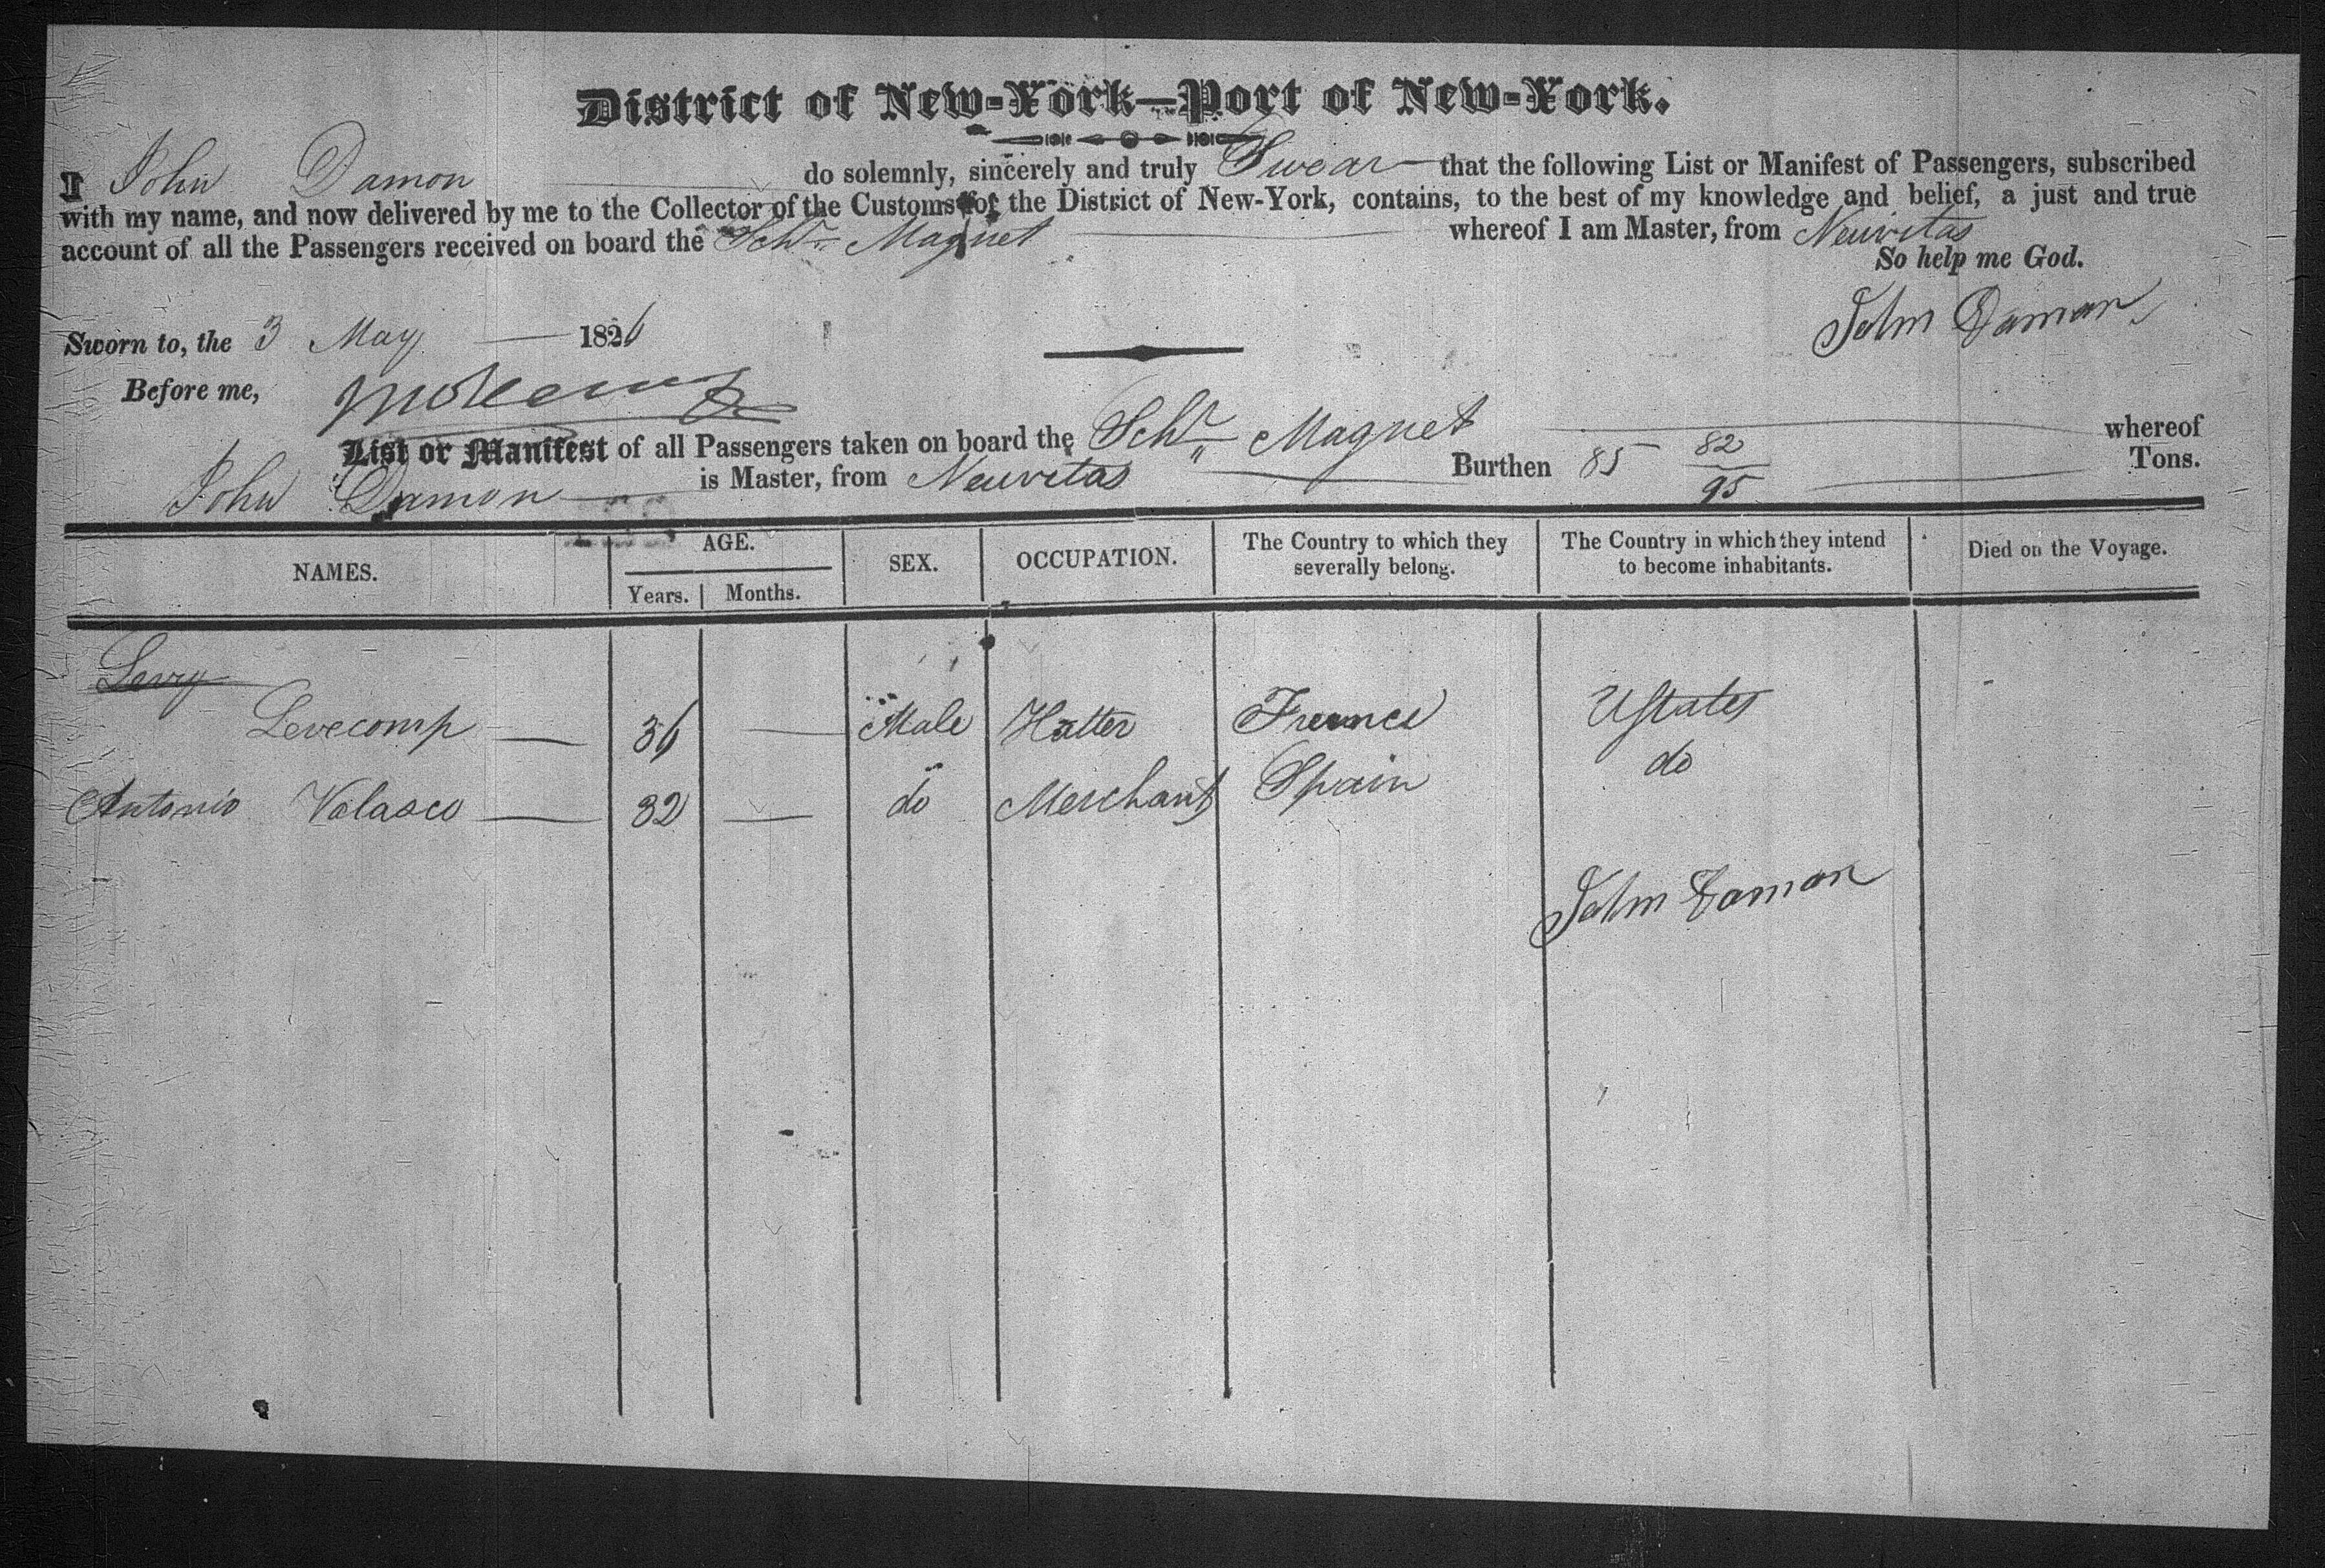 District of New-York—Port of New-York.
I John Damon do solemnly, sincerely and truly Swear that the following List or Manifest of Passengers, subscribed
with my name, and now delivered by me to the Collector of the Customs for the District of New-York, contains, to the best of my knowledge and belief, a just and true
account of all the Passengers received on board the Schr Magnet whereof I am Master, from Neuvitas
So help me God.
John Damon
Sworn to, the 3 May 1826
Before me,
List or Manifest of all Passengers taken on board the Schr Magnet whereof
John Damon is Master, from Neuvitas Burthen 85 82/95 Tons.
NAMES. AGE. Years. Months. SEX. OCCUPATION. The Country to which they severally belong. The Country in which they intend to become inhabitants. Died on the Voyage.
Levy
Levecomp 36 Male Hatter France UStates
Antonio Valasco 32 do Merchant Spain do
John Damon